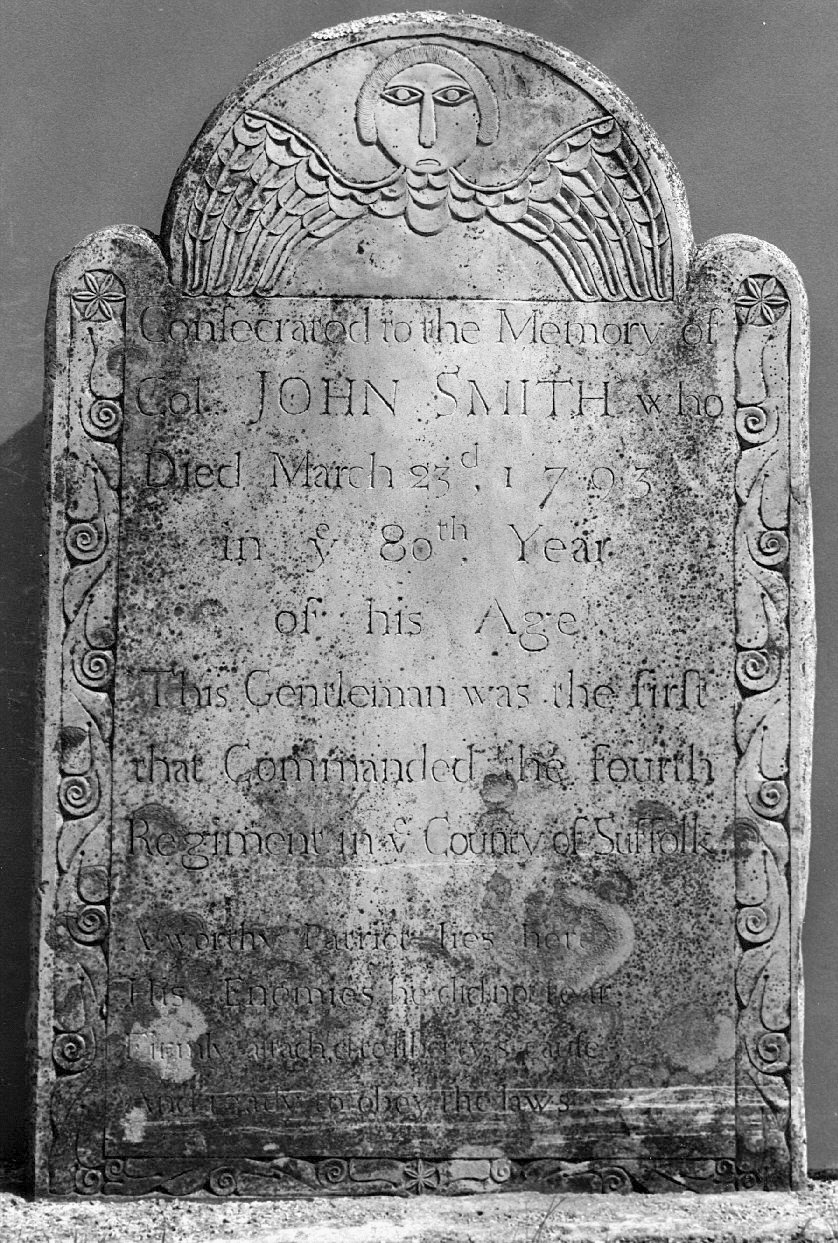 Conſecrated to the Memory of
Col. JOHN SMITH who
Died March 23d. 1793
in yͤ 80th. Year
of his Age
This Gentleman was the firſt
that Commanded the fourth
Regiment in yͤ County of Suffolk
A worthy Patriot lies here
His Enemies he did not fear
Firmly attach,d to liberty,s cauſe
And ready to obey the laws